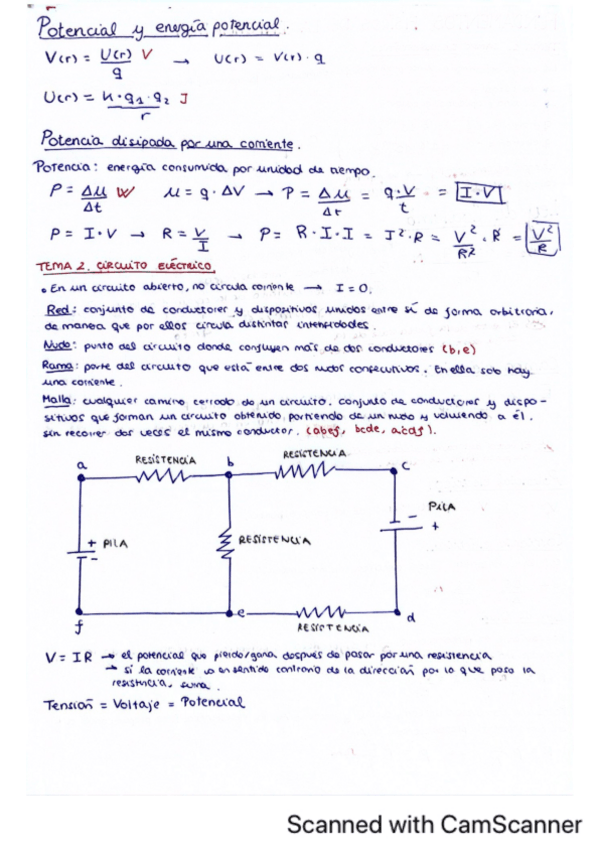 Potencial y energía potencial.
V(r) = U(r)/q V → U(r) = V(r) · q
U(r) = K·q1·q2/r J
Potencia disipada por una corriente.
Potencia: energía consumida por unidad de tiempo.
P = Δu/Δt W u = q · ΔV → P = Δu/Δt = q·V/t = I·V
P = I·V → R = V/I → P = R·I·I = I²·R = V²/R² · R = V²/R
TEMA 2. CIRCUITO ELÉCTRICO
• En un circuito abierto, no circula corriente → I = 0.
Red: conjunto de conductores y dispositivos unidos entre sí de forma arbitraria,
de manera que por ellos circula distintas intensidades.
Nudo: punto del circuito donde confluyen más de dos conductores (b,e)
Rama: parte del circuito que está entre dos nudos consecutivos. En ella solo hay
una corriente.
Malla: cualquier camino cerrado de un circuito. conjunto de conductores y dispo-
sitivos que forman un circuito obtenido partiendo de un nudo y volviendo a él,
sin recorrer dos veces el mismo conductor. (abef, bcde, acdf).
a RESISTENCIA b RESISTENCIA c
PILA - +
+ PILA -
RESISTENCIA
f e d
RESISTENCIA
V = IR → el potencial que pierdo/gana después de pasar por una resistencia
→ si la corriente va en sentido contrario de la dirección por lo que pasa la
resistencia, suma.
Tensión = Voltaje = Potencial
Scanned with CamScanner